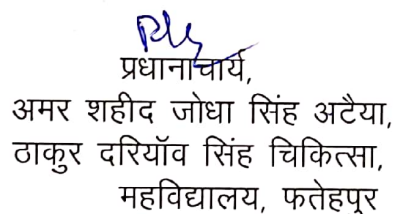 प्रधानाचार्य,
अमर शहीद जोधा सिंह अटैया,
ठाकुर दरियॉव सिंह चिकित्सा,
महविद्यालय, फतेहपुर